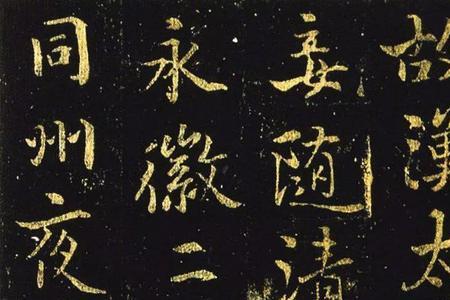 故漢太
妾随清
永徽二
同州夜